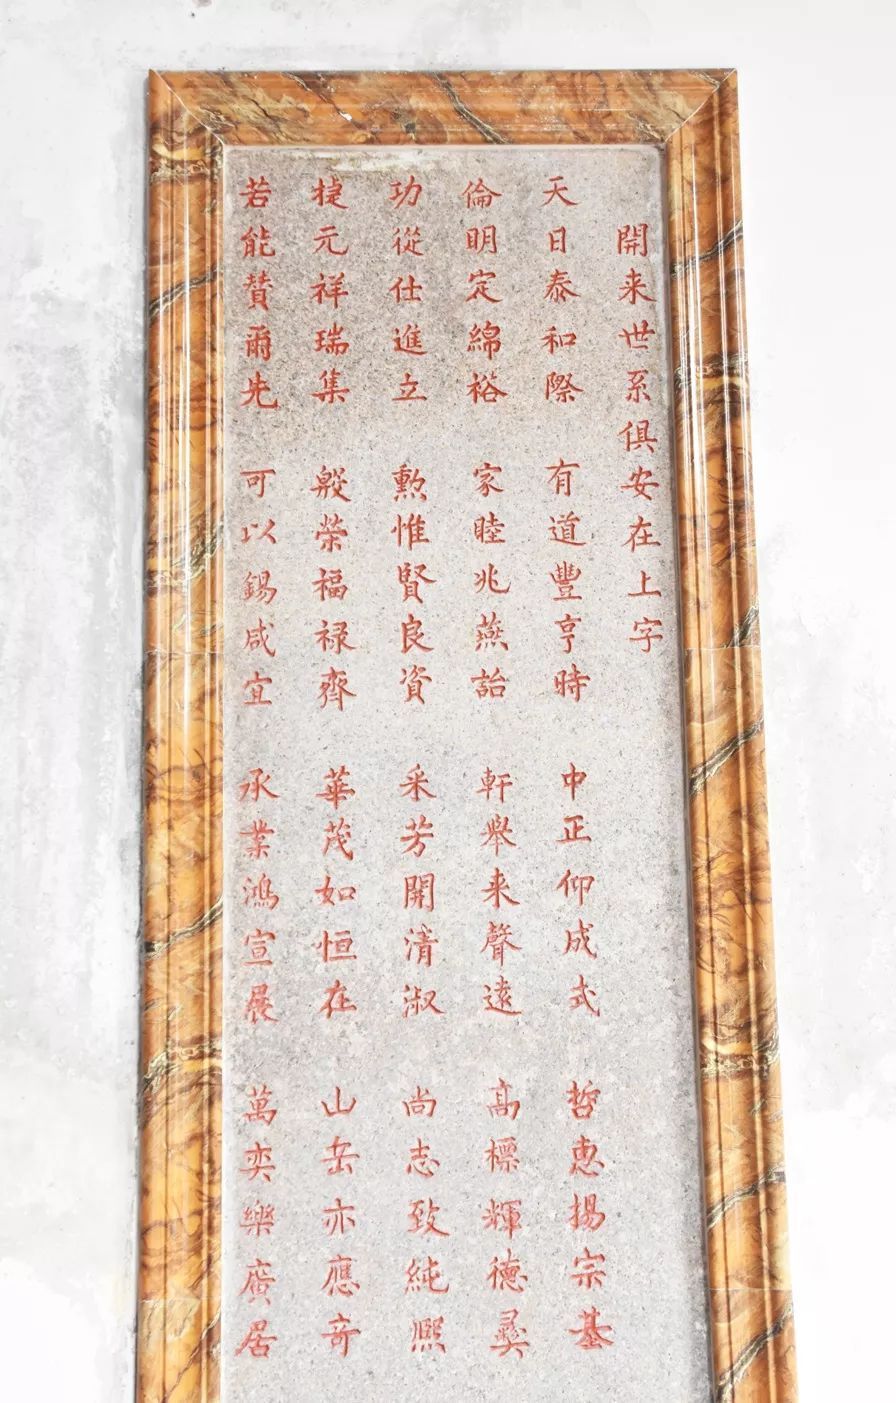 開来世系俱安在上字
天日泰和際 有道豐亨時 中正仰成式 哲惠揚宗基
倫明定綿裕 家睦兆燕詒 軒舉来聲遠 高標輝德彝
功從仕進立 勲惟賢良資 采芳開清淑 尚志致純熙
捷元祥瑞集 榮福禄齊 華茂如恒在 山岳亦應奇
若能贊爾先 可以錫咸宜 承業鴻宣展 萬奕樂廣居